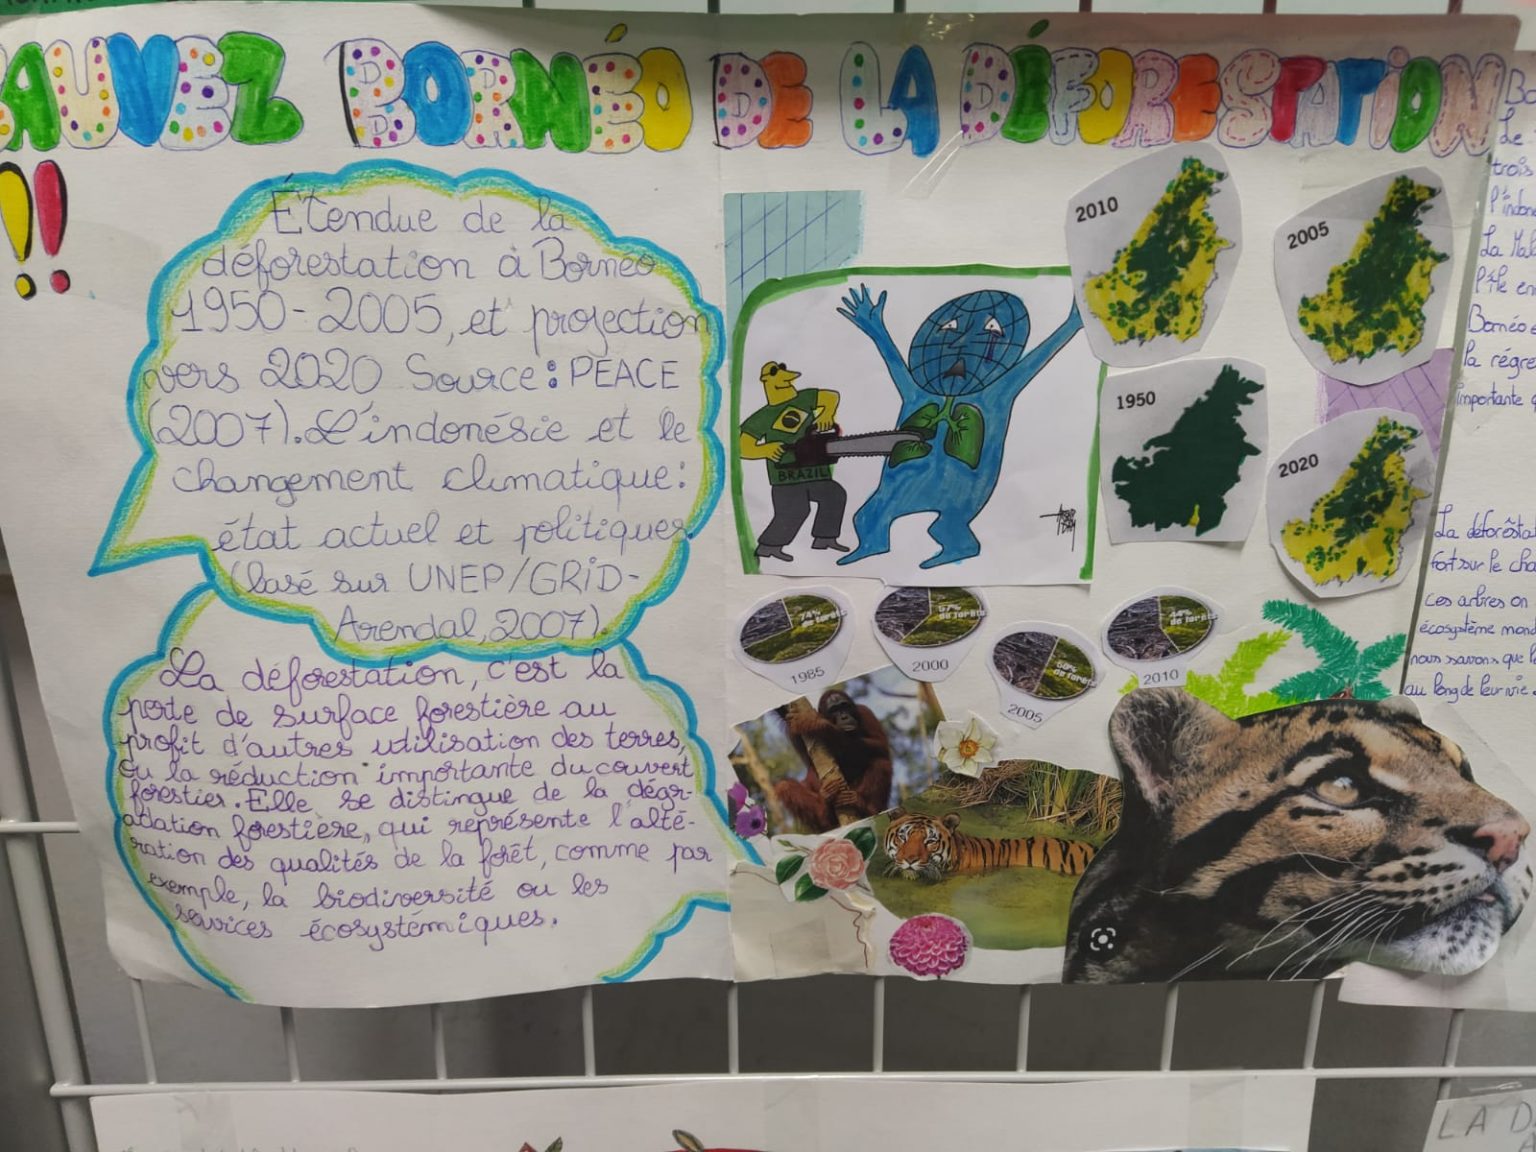 SAUVEZ BORNÉO DE LA DÉFORESTATION
!!
Étendue de la
déforestation à Bornéo
1950-2005, et projection
vers 2020 Source: PEACE
(2007). L'indonésie et le
changement climatique:
état actuel et politiques
(basé sur UNEP/GRID-
Arendal, 2007)
La déforestation, c'est la
perte de surface forestière au
profit d'autres utilisation des terres,
ou la réduction importante du couvert
forestier. Elle se distingue de la dégr-
adation forestière, qui représente l'alté-
ration des qualités de la forêt, comme par
exemple, la biodiversité ou les
services écosystémiques.
BRAZIL
2010
2005
1950
2020
74%
de forêts
1985
57%
de forêts
2000
50%
de forêts
2005
44%
de forêts
2010
Le
trois
La
l'île en
Bornéo
la régre
importante
La déforesta
fort sur le cha
ces arbres on
écosystème mond
nous savons que
au long de leur vie
LA D